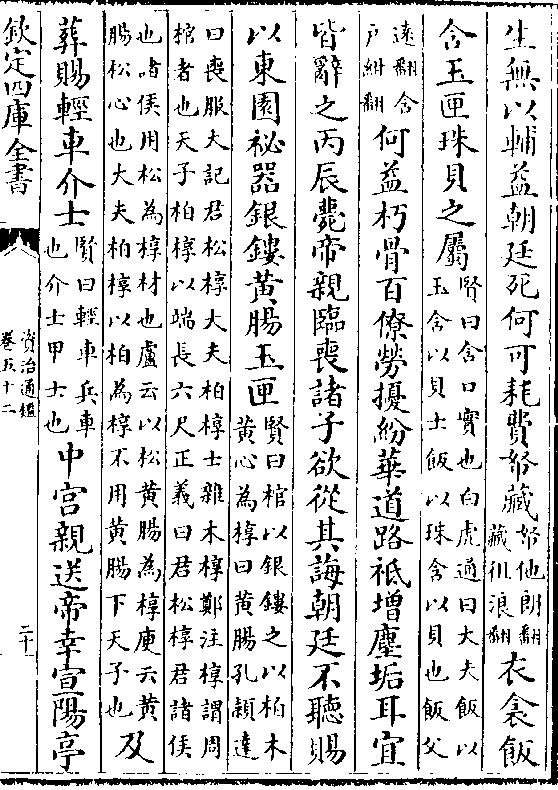 生無以輔益朝廷死何可耗費帑藏
帑他朗翻
藏徂浪翻
衣衾飯
含玉匣珠貝之屬
賢曰含口實也白虎通曰大夫飯以
玉含以貝士飯以珠含以貝也飯父
遠翻含
户紺翻
何益朽骨百僚勞擾紛華道路祗增塵垢耳宜
皆辭之丙辰薨帝親臨喪諸子欲從其誨朝廷不聽賜
以東園祕器銀鏤黄腸玉匣
賢曰棺以銀鏤之以柏木
黄心為椁曰黄腸孔穎達
曰喪服大記君松椁大夫柏椁士雜木椁鄭注椁謂周
棺者也天子柏椁以端長六尺正義曰君松椁君諸侯
也諸侯用松為椁材也盧云以松黄腸為椁庾云黄
腸松心也大夫柏椁以柏為椁不用黄腸下天子也
及
葬賜輕車介士
賢曰輕車兵車
也介士甲士也
中宫親送帝幸宣陽亭
欽定四庫全書
資治通鑑
卷五十二
二十